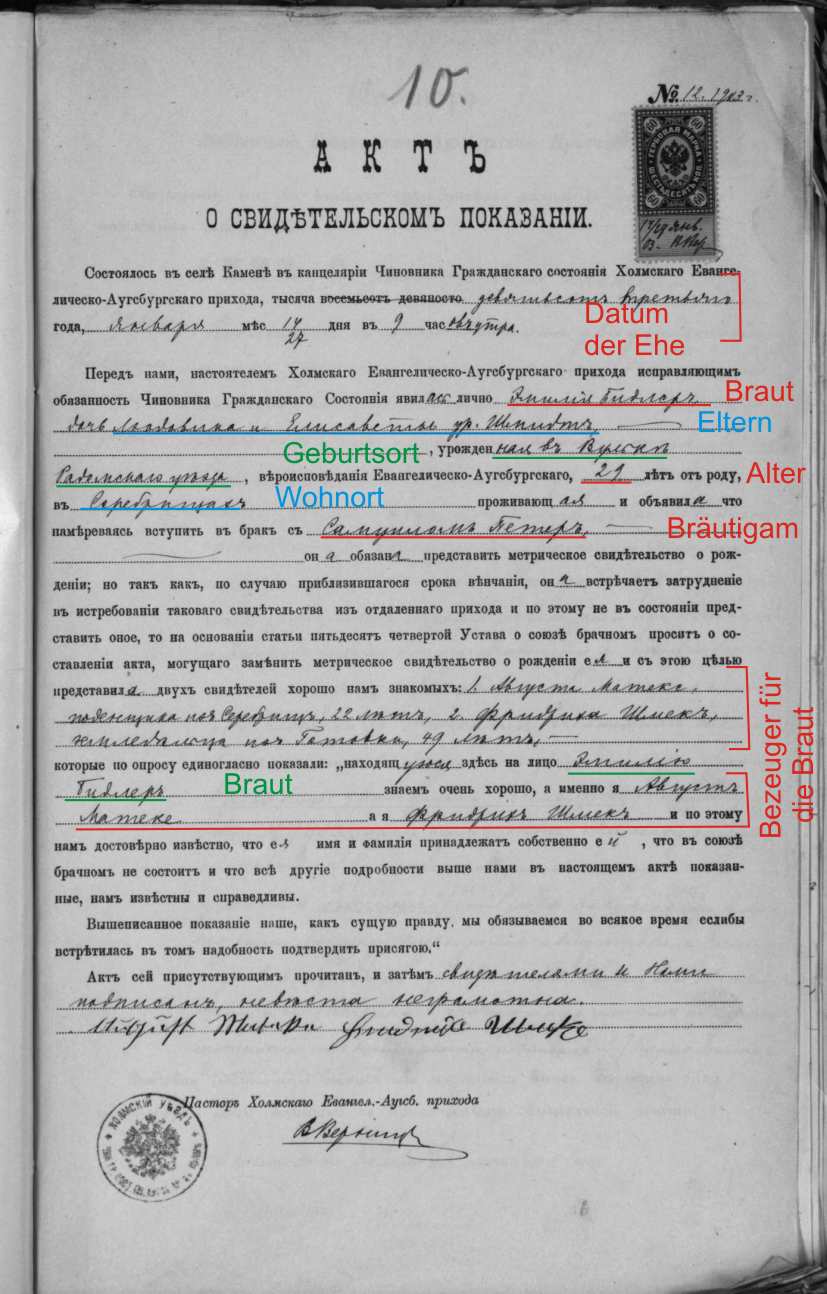 10.
№ 12. 1903 г.
АКТЪ
О СВИДѢТЕЛЬСКОМЪ ПОКАЗАНІИ.
60 60
ГЕРБОВАЯ МАРКА
ШЕСТЬДЕСЯТЪ КОП.
60 60
14/27 Янв.
03.
Состоялось въ селѣ Каменѣ въ канцеляріи Чиновника Гражданскаго состоянія Холмскаго Еванге-
лическо-Аугсбургскаго прихода, тысяча восемьсотъ девяносто девятьсотъ третьяго
года, Января мѣс 14/27 дня въ 9 час овъ утра.
Datum
der Ehe
Передъ нами, настоятелемъ Холмскаго Евангелическо-Аугсбургскаго прихода исправляющимъ
обязанность Чиновника Гражданскаго Состоянія явил ась лично Эмилія Гидлеръ Braut
дочь Людовика и Елисаветы ур. Шмидтъ, Eltern
Geburtsort , урожден ная въ
Радомскаго уѣзда , вѣроисповѣданія Евангелическо-Аугсбургскаго, 29 лѣтъ отъ роду, Alter
въ Серебрищахъ Wohnort проживающ ая и объявил а что
намѣреваясь вступить в бракъ съ Самуиломъ Петеръ, Bräutigam
он а обязан а представить метрическое свидѣтельство о рож-
деніи; но такъ какъ, по случаю приблизившагося срока вѣнчанія, он а встрѣчаетъ затрудненіе
въ истребованіи таковаго свидѣтельства изъ отдаленнаго прихода и по этому не въ состояніи пред-
ставить оное, то на основаніи статьи пятьдесятъ четвертой Устава о союзѣ брачномъ проситъ о со-
ставленіи акта, могущаго замѣнить метрическое свидѣтельство о рожденіи е я и съ этою цѣлью
представил а двухъ свидѣтелей хорошо намъ знакомыхъ: 1. Августа Матеке,
поденщика изъ Серебрищъ, 22 лѣтъ, 2. Фридриха Шмекъ,
земледѣльца изъ Готовки, 49 лѣтъ,
Bezeuger für
die Braut
которые по опросу единогласно показали: „находящ уюся здѣсь на лицо Эмилію
Гидлеръ Braut знаемъ очень хорошо, а именно я Августъ
Матеке а я Фридрихъ Шмекъ и по этому
намъ достовѣрно извѣстно, что е я имя и фамилія принадлежатъ собственно е й , что въ союзѣ
брачномъ не состоитъ и что всѣ другіе подробности выше нами въ настоящемъ актѣ показан-
ные, намъ извѣстны и справедливы.
Вышеписанное показаніе наше, какъ сущую правду, мы обязываемся во всякое время еслибы
встрѣтилась въ томъ надобность подтвердить присягою.“
Актъ сей присутствующимъ прочитанъ, и затѣмъ свидѣтелями и Нами
подписанъ, невѣста неграмотна.
August Mateke
Пасторъ Холмскаго Евангел.-Аугсб. прихода
ХОЛМСКІЙ УѢЗДЪ